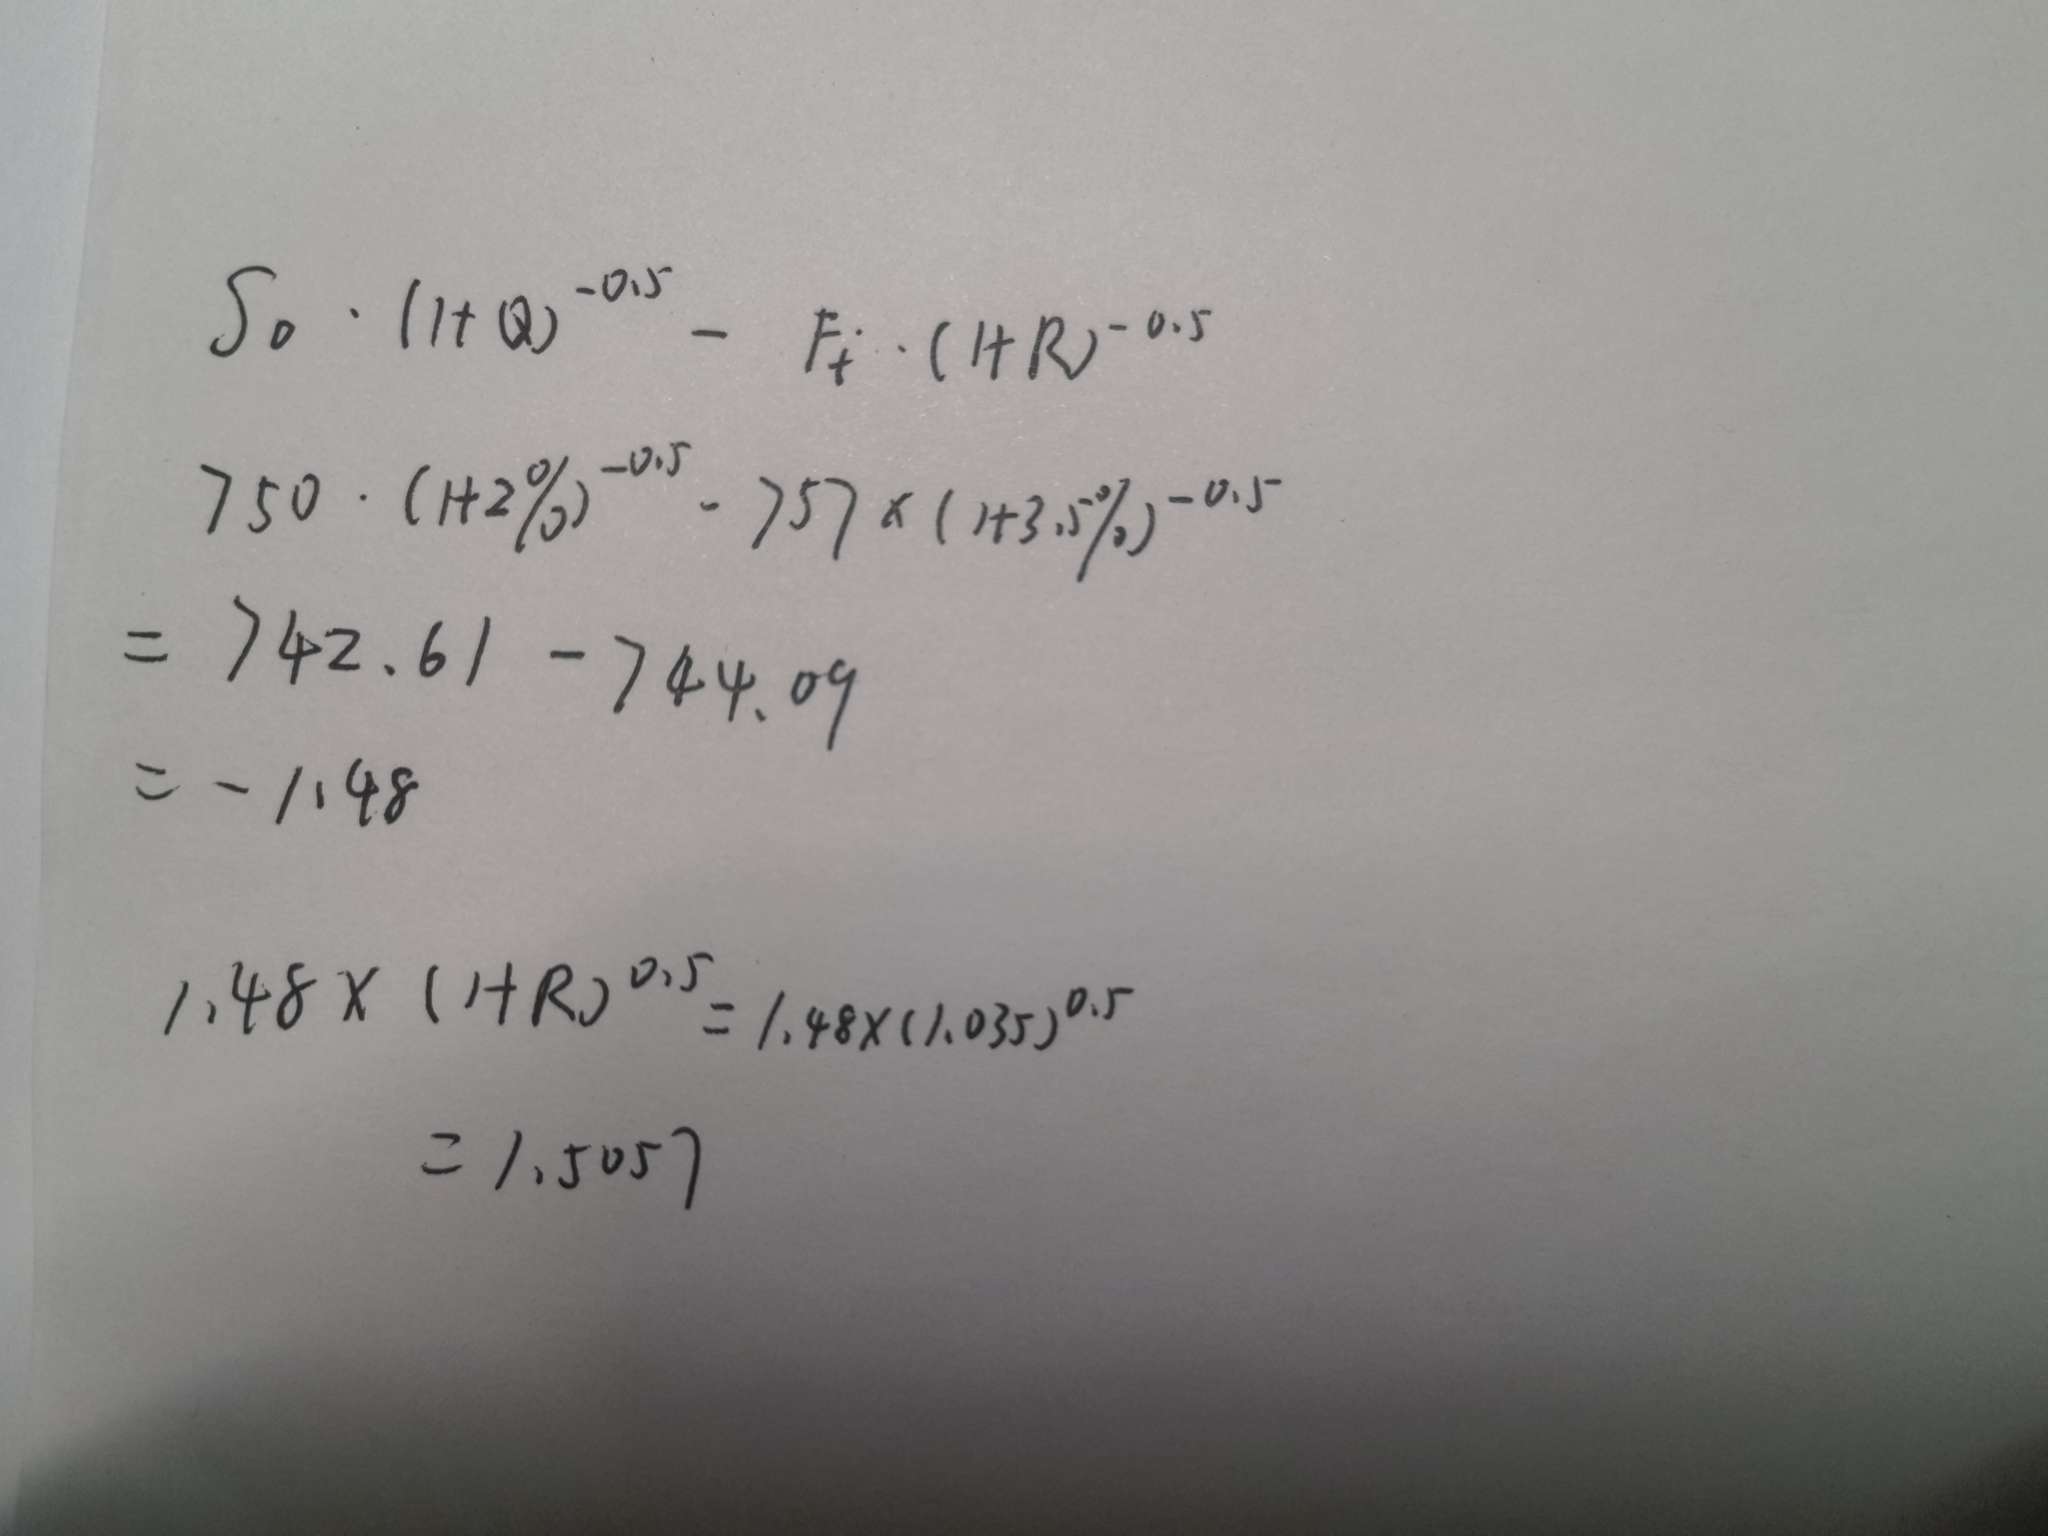 S₀ · (1+Q)^-0.5 - Fₜ · (1+R)^-0.5
750 · (1+2%)^-0.5 - 757 × (1+3.5%)^-0.5
= 742.61 - 744.09
= -1.48
1.48 × (1+R)^0.5 = 1.48×(1.035)^0.5
= 1.5057